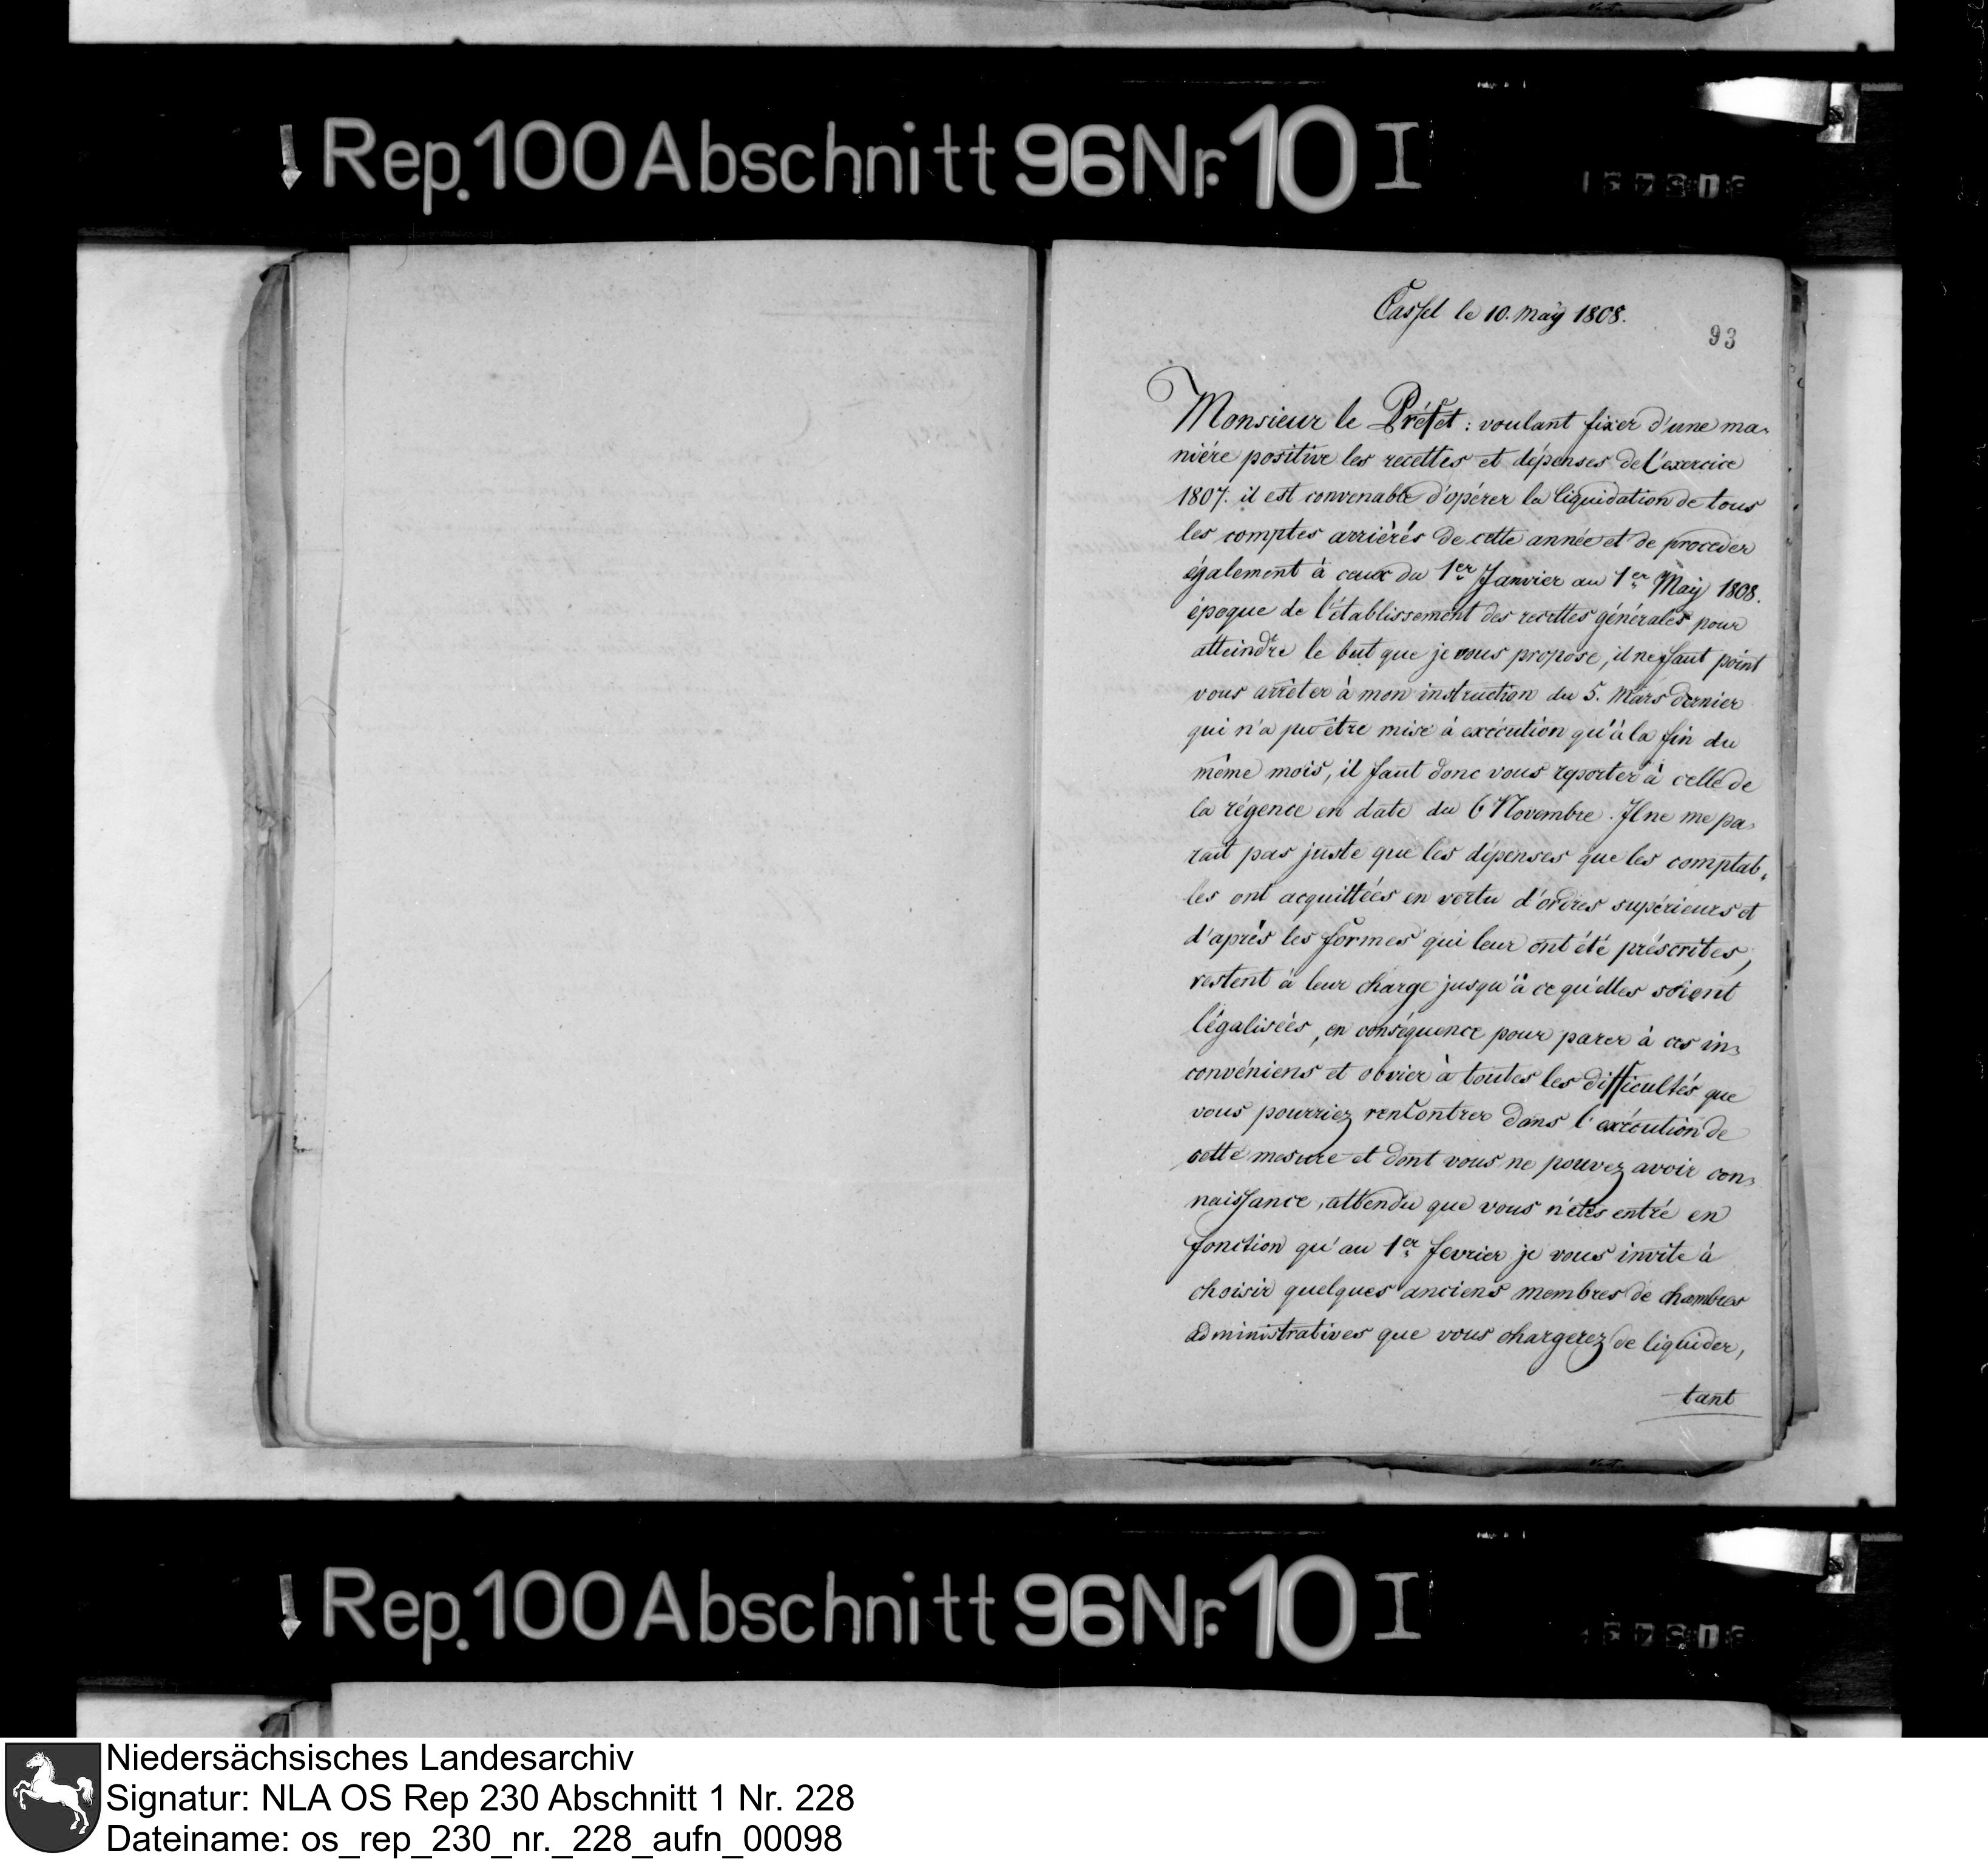 Rep. 100 Abschnitt 96 Nr. 10 I
Cassel le 10. may 1808.
93
Monsieur le Préfet : voulant fixer d'une ma-
niére positive les recettes et dépenses de l'exercice
1807. il est convenable d'opérer la liquidation de tous
les comptes arriérés de cette année et de proceder
également à ceux du 1er Janvier au 1er May 1808.
époque de l'établissement des recettes générales pour
atteindre le but que je vous propose, il ne faut point
vous arrêter à mon instruction du 5. Mars dernier
qui n'a pu être mise à exécution qu'à la fin du
même mois, il faut donc vous reporter à celle de
la régence en date du 6 Novembre. Il ne me pa-
rait pas juste que les dépenses que les comptab-
les ont acquittées en vertu d'ordres supérieurs et
d'aprés les formes qui leur ont été préscrites,
restent à leur charge jusqu'à ce qu'elles soient
légalisées, en conséquence pour parer à ces in-
convéniens et obvier à toutes les difficultés que
vous pourriez rencontrer dans l'exécution de
cette mesure et dont vous ne pouvez avoir con-
naissance, attendu que vous n'êtes entré en
fonction qu'au 1er fevrier je vous invite à
choisir quelques anciens membres de chambres
administratives que vous chargerez de liquider,
tant
Rep. 100 Abschnitt 96 Nr. 10 I
Niedersächsisches Landesarchiv
Signatur: NLA OS Rep 230 Abschnitt 1 Nr. 228
Dateiname: os_rep_230_nr._228_aufn_00098